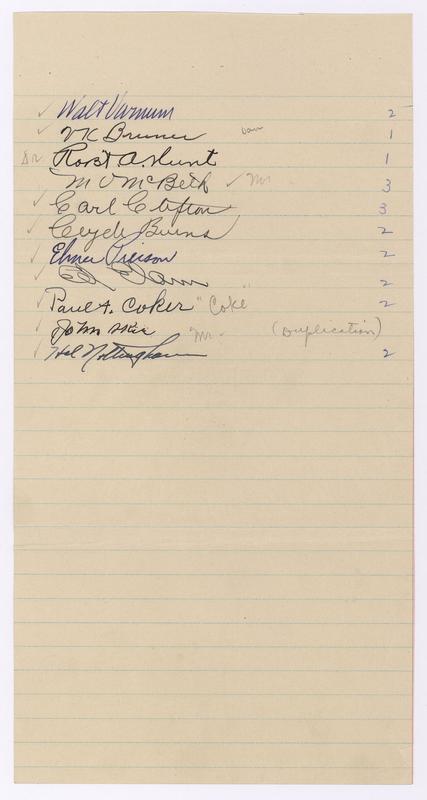 ✓ Walt Varnum 2
✓ VK Bruner 1
Dr. Robt A. Hunt 1
M V McBeth ✓ Mr 3
✓ Carl Clifton 3
✓ Clyde Burns 2
✓ Elmer Pierson 2
✓ 2
✓ Paul F. Coker "Coke" 2
✓ John Mr. (Duplication)
✓ Hal Nottingham 2